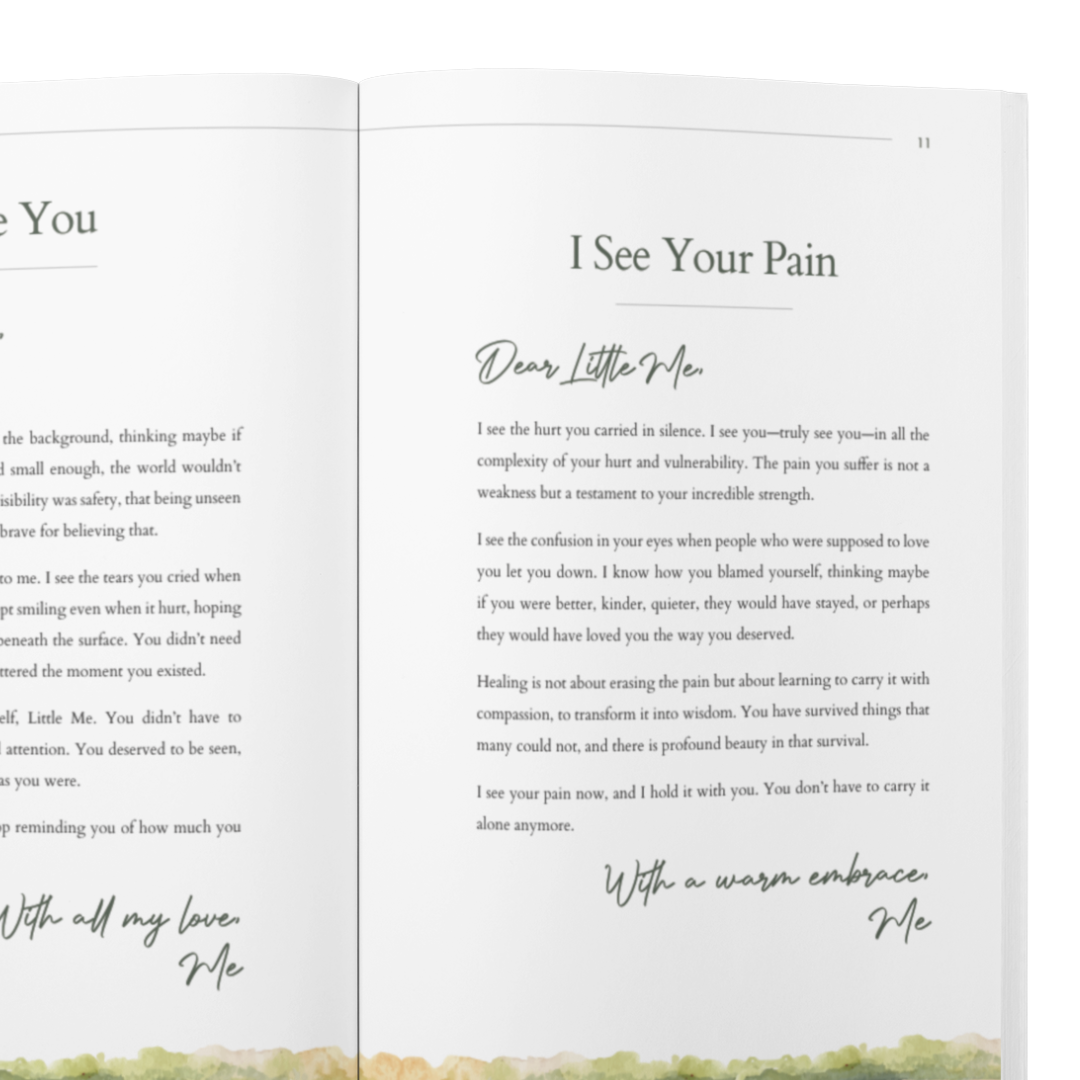 You
the background, thinking maybe if
small enough, the world wouldn't
was safety, that being unseen
brave for believing that.
to me. I see the tears you cried when
smiling even when it hurt, hoping
beneath the surface. You didn't need
the moment you existed.
Little Me. You didn't have to
attention. You deserved to be seen,
as you were.
reminding you of how much you
With all my love,
Me
11
I See Your Pain
Dear Little Me,
I see the hurt you carried in silence. I see you—truly see you—in all the
complexity of your hurt and vulnerability. The pain you suffer is not a
weakness but a testament to your incredible strength.
I see the confusion in your eyes when people who were supposed to love
you let you down. I know how you blamed yourself, thinking maybe
if you were better, kinder, quieter, they would have stayed, or perhaps
they would have loved you the way you deserved.
Healing is not about erasing the pain but about learning to carry it with
compassion, to transform it into wisdom. You have survived things that
many could not, and there is profound beauty in that survival.
I see your pain now, and I hold it with you. You don't have to carry it
alone anymore.
With a warm embrace,
Me